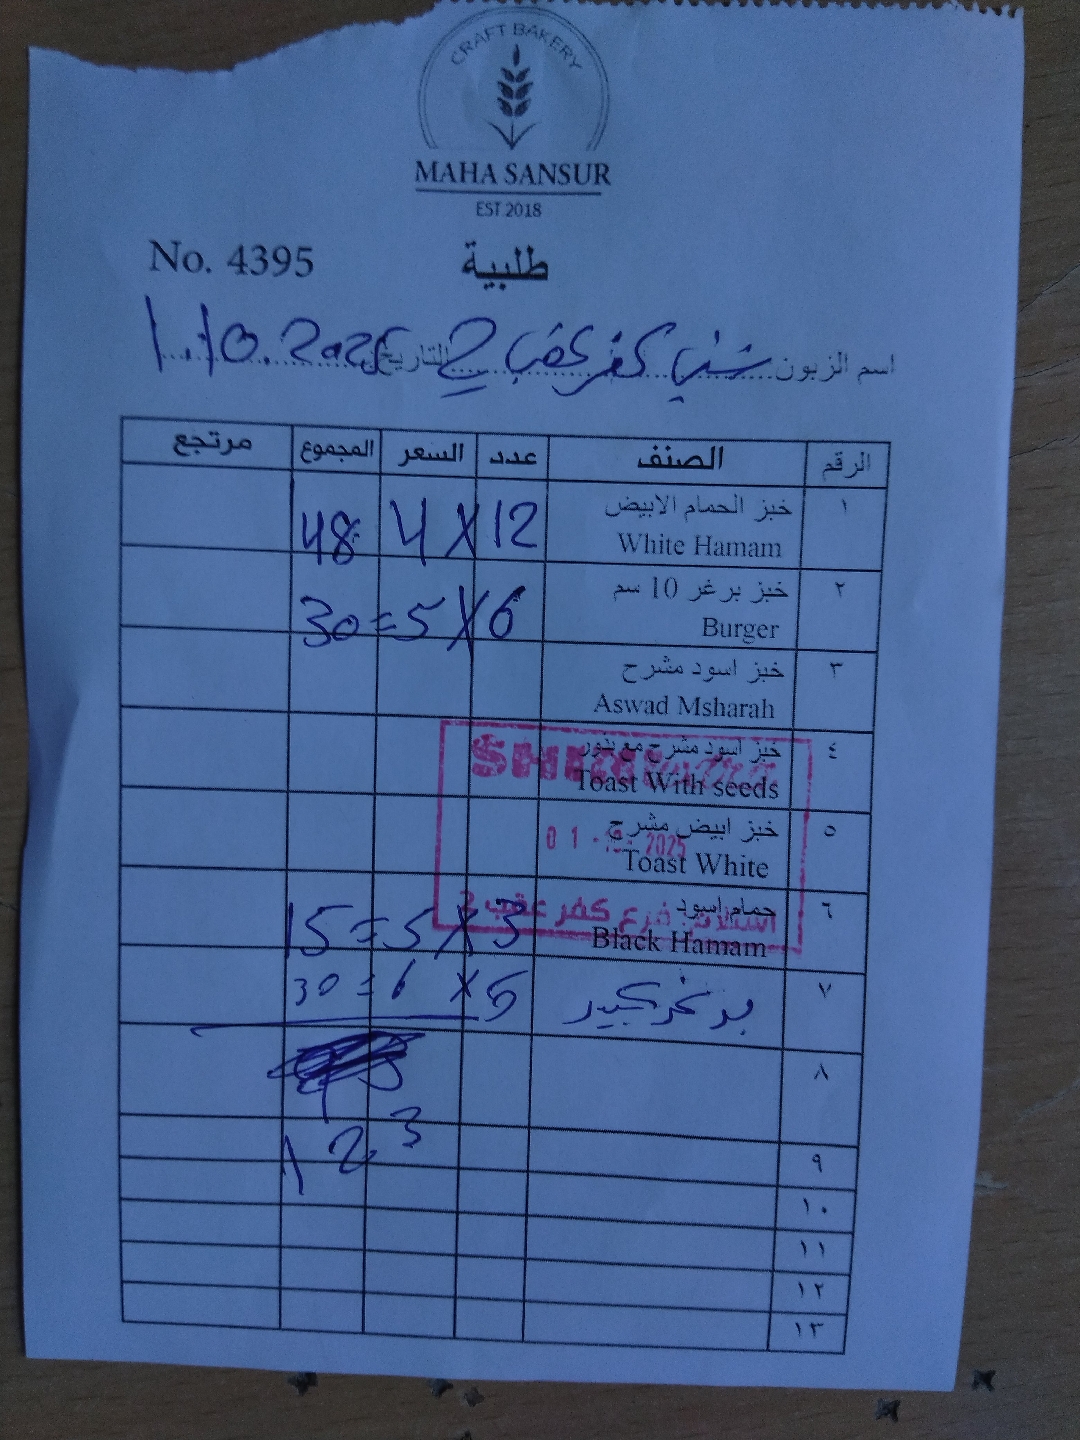 CRAFT BAKERY
MAHA SANSUR
EST 2018
No. 4395
طلبية
اسم الزبون شني كفر عقب 2 التاريخ 1.10.2025
الرقم الصنف عدد السعر المجموع مرتجع
١ خبز الحمام الابيض 12 X 4 48
White Hamam
٢ خبز برغر 10 سم 6 X 5 = 30
Burger
٣ خبز اسود مشرح
Aswad Msharah
٤ خبز اسود مشرح مع بذور
Toast With seeds
٥ خبز ابيض مشرح
01 2025
Toast White
٦ حمام اسود 3 X 5 = 15
استلام فرع كفر عقب 2
Black Hamam
٧ برغر كبير 5 X 6 = 30
٨
123
٩
١٠
١١
١٢
١٣